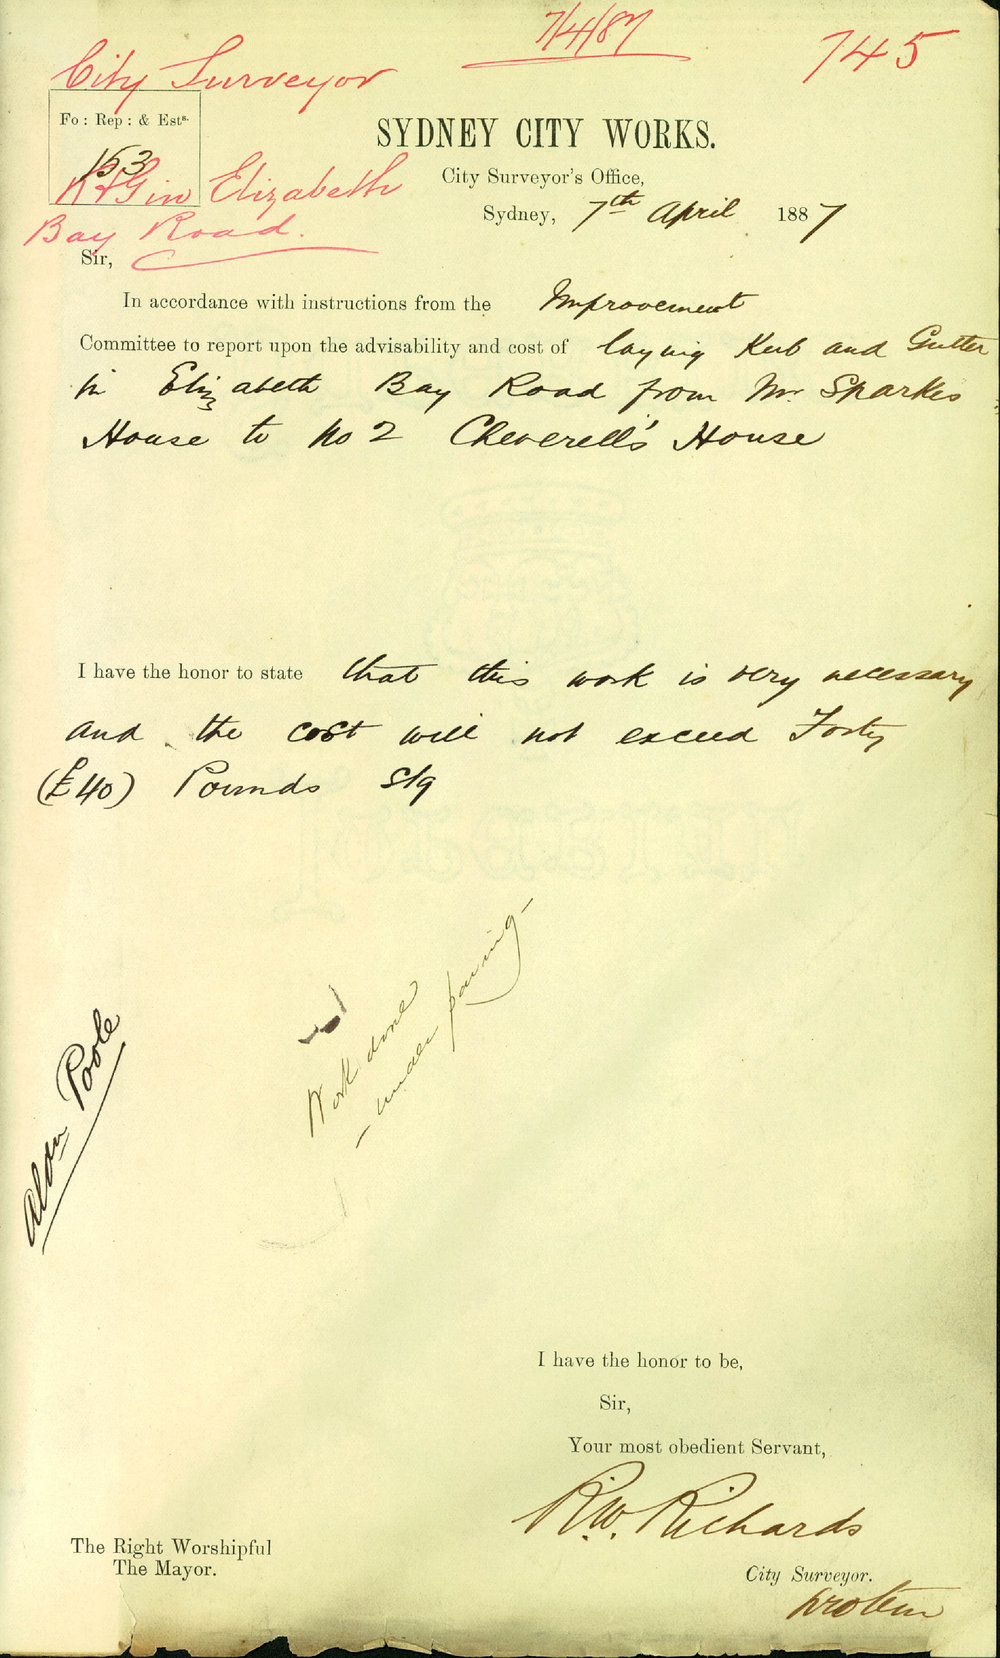 7/4/87
745
City Surveyor
Fo : Rep : & Ests.
153
K & G in Elizabeth
Bay Road.
SYDNEY CITY WORKS.
City Surveyor's Office,
Sydney, 7th April 1887
Sir,
In accordance with instructions from the Improvement
Committee to report upon the advisability and cost of laying Kerb and Gutter
in Elizabeth Bay Road from Mr Sparkes
House to No 2 Cheverell's House
I have the honor to state that this work is very necessary
and the cost will not exceed Forty
(£40) Pounds Stg
Work done
- under paving -
Aldn Poole
I have the honor to be,
Sir,
Your most obedient Servant,
R.W. Richards
City Surveyor.
protem
The Right Worshipful
The Mayor.